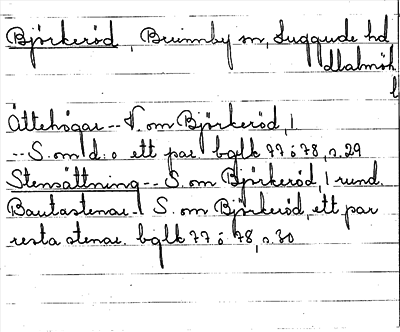 Björkeröd, Brunnby sn, Luggude hd
Malmöh.
l
Ättehögar -- N. om Björkeröd, 1
-- S. om d:o ett par bglh 77 o 78, s. 29
Stensättning -- S. om Björkeröd, 1 rund.
Bautastenar - S. om Björkeröd, ett par
resta stenar. bglh 77 o 78, s. 30